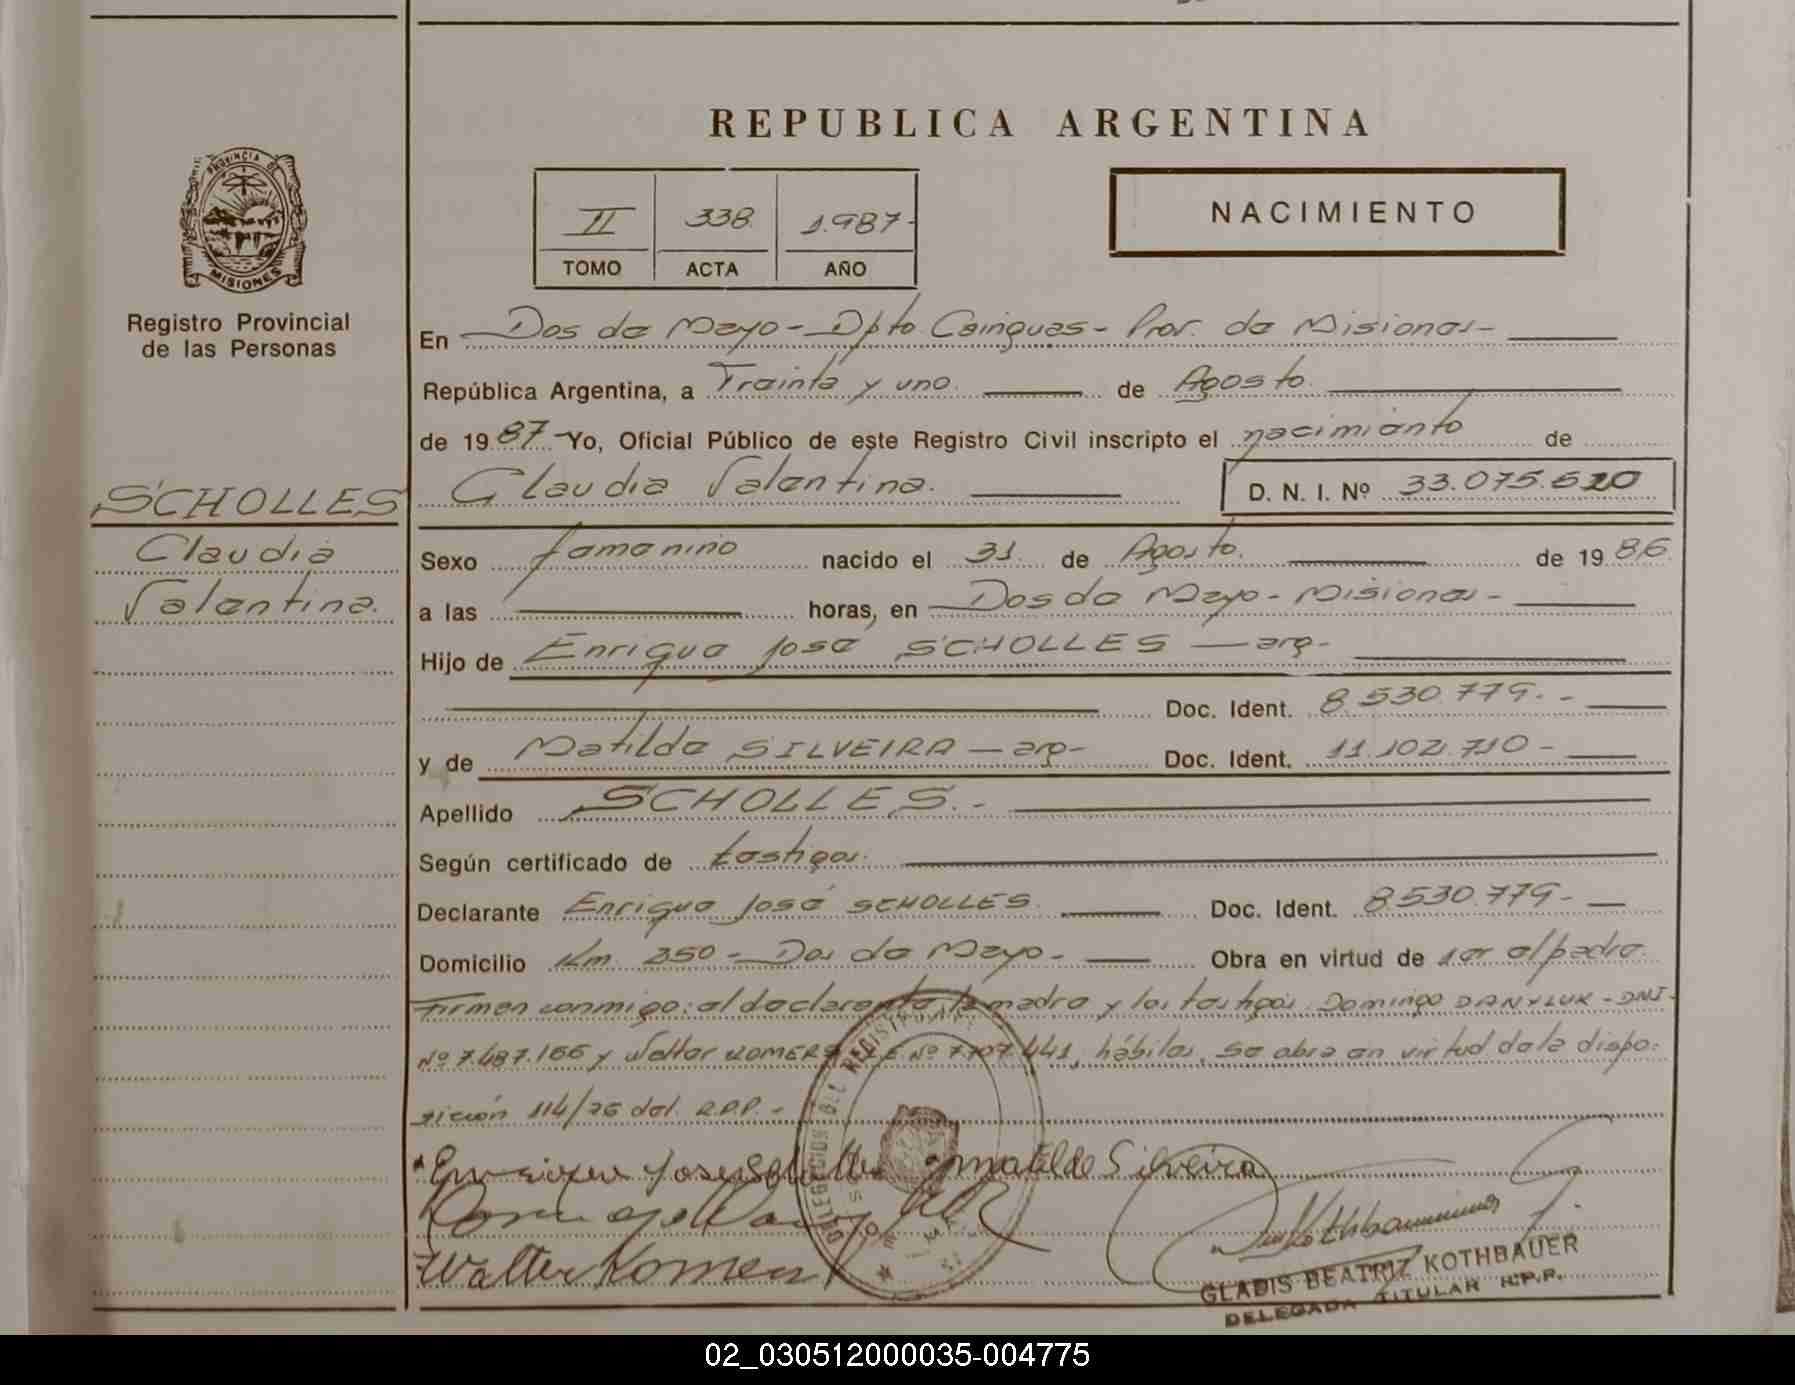 REPUBLICA ARGENTINA
PROVINCIA DE
MISIONES
Registro Provincial
de las Personas
II 338 1.987-
TOMO ACTA AÑO
NACIMIENTO
En Dos de Mayo - Dpto. Cainguas - Prov. de Misiones -
República Argentina, a Treinta y uno. de Agosto.
de 1987 - Yo, Oficial Público de este Registro Civil inscripto el nacimiento de
SCHOLLES
Claudia
Valentina.
Claudia Valentina. D. N. I. Nº 33.075.620
Sexo femenino nacido el 31. de Agosto. de 1986.
a las horas, en Dos de Mayo - Misiones -
Hijo de Enrique José SCHOLLES — arg-
Doc. Ident. 8.530.779. -
y de Matilde SILVEIRA — arg- Doc. Ident. 11.102.710 -
Apellido SCHOLLES. -
Según certificado de testigos.
Declarante Enrique José SCHOLLES. Doc. Ident. 8.530.779 -
Domicilio Km. 250 - Dos de Mayo - Obra en virtud de ser el padre.
Firman conmigo: el declarante, la madre y los testigos: Domingo DANYLUK - DNI -
Nº 7.487.166 y Walter KOMERS LE Nº 7.707.441, hábiles, se obra en virtud de la dispo-
sición 114/76 del. R.P.P. -
Enrique Jose Scholles Matilde Silveira
Walter Komers
DELEGACION DEL REGISTRO
GLADIS BEATRIZ KOTHBAUER
DELEGADA TITULAR R.P.P.
02_030512000035-004775